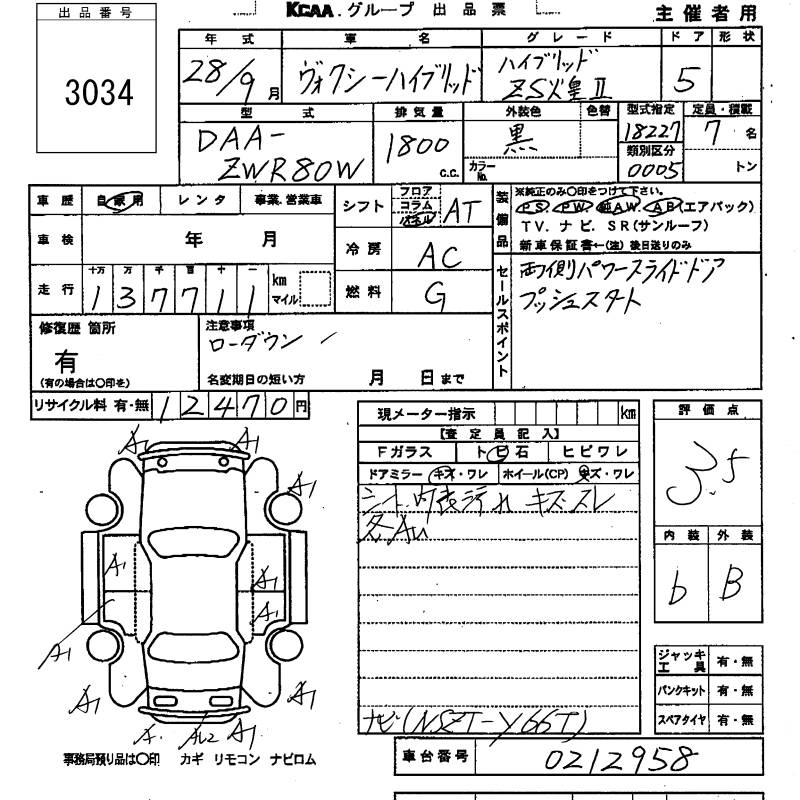 出品番号
3034
KCAA.グループ 出品票
主催者用
年式 車名 グレード ドア 形状
28/9月 ヴォクシーハイブリッド ハイブリッド ZS煌II 5
型式 排気量 外装色 色替 型式指定 定員・積載
DAA-ZWR80W 1800 C.C. 黒 カラーNo. 18227 7名
類別区分 0005 トン
車歴 自家用 レンタ 事業.営業車
シフト フロア コラム パネル AT
装備品 ※純正のみ〇印をつけて下さい。
PS. PW. 純AW. AB(エアバック)
TV. ナビ. SR(サンルーフ)
新車保証書←(注)後日送りのみ
車検 年 月
冷房 AC
走行 十万 万 千 百 十 一
137711 km マイル
燃料 G
セールスポイント
両側パワースライドドア
プッシュスタート
修復歴 箇所
有
(有の場合は〇印を)
注意事項
ローダウン
名変期日の短い方 月 日まで
リサイクル料 有・無 12470円
現メーター指示 km
【査定員記入】
Fガラス トビ石 ヒビワレ
ドアミラー キズ・ワレ ホイール(CP) キズ・ワレ
シート.内装汚れ キズ.スレ
各AU
ナビ(NSZT-Y66T)
評価点
3.5
内装 外装
b B
ジャッキ工具 有・無
パンクキット 有・無
スペアタイヤ 有・無
A1 A1
A1
A1
A1
A1
A1
A1 A1
A. AU2 A1
事務局預り品は〇印 カギ リモコン ナビロム
車台番号 0212958